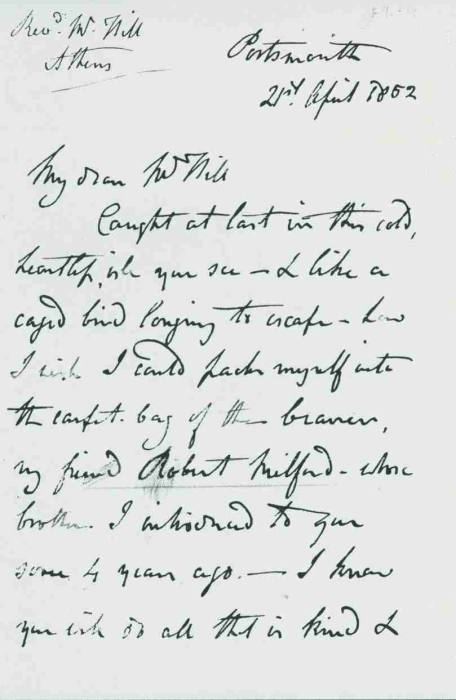 Revd. Mr. Hill
Athens
Portsmouth
21st. April 1852
My dear Mr Hill
Caught at last in this cold,
heartless isle you see - & like a
caged bird longing to escape - how
I wish I could pack myself into
the carpet-bag of the bearer,
my friend Robert Milford - whose
brother I introduced to you
some 4 years ago. - I know
you will do all that is kind &